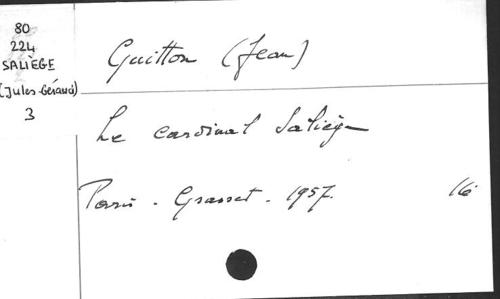 80
224
SALIÈGE
(Jules-Géraud)
3
Guitton (Jean)
Le cardinal Saliège
Paris - Grasset - 1957. 16